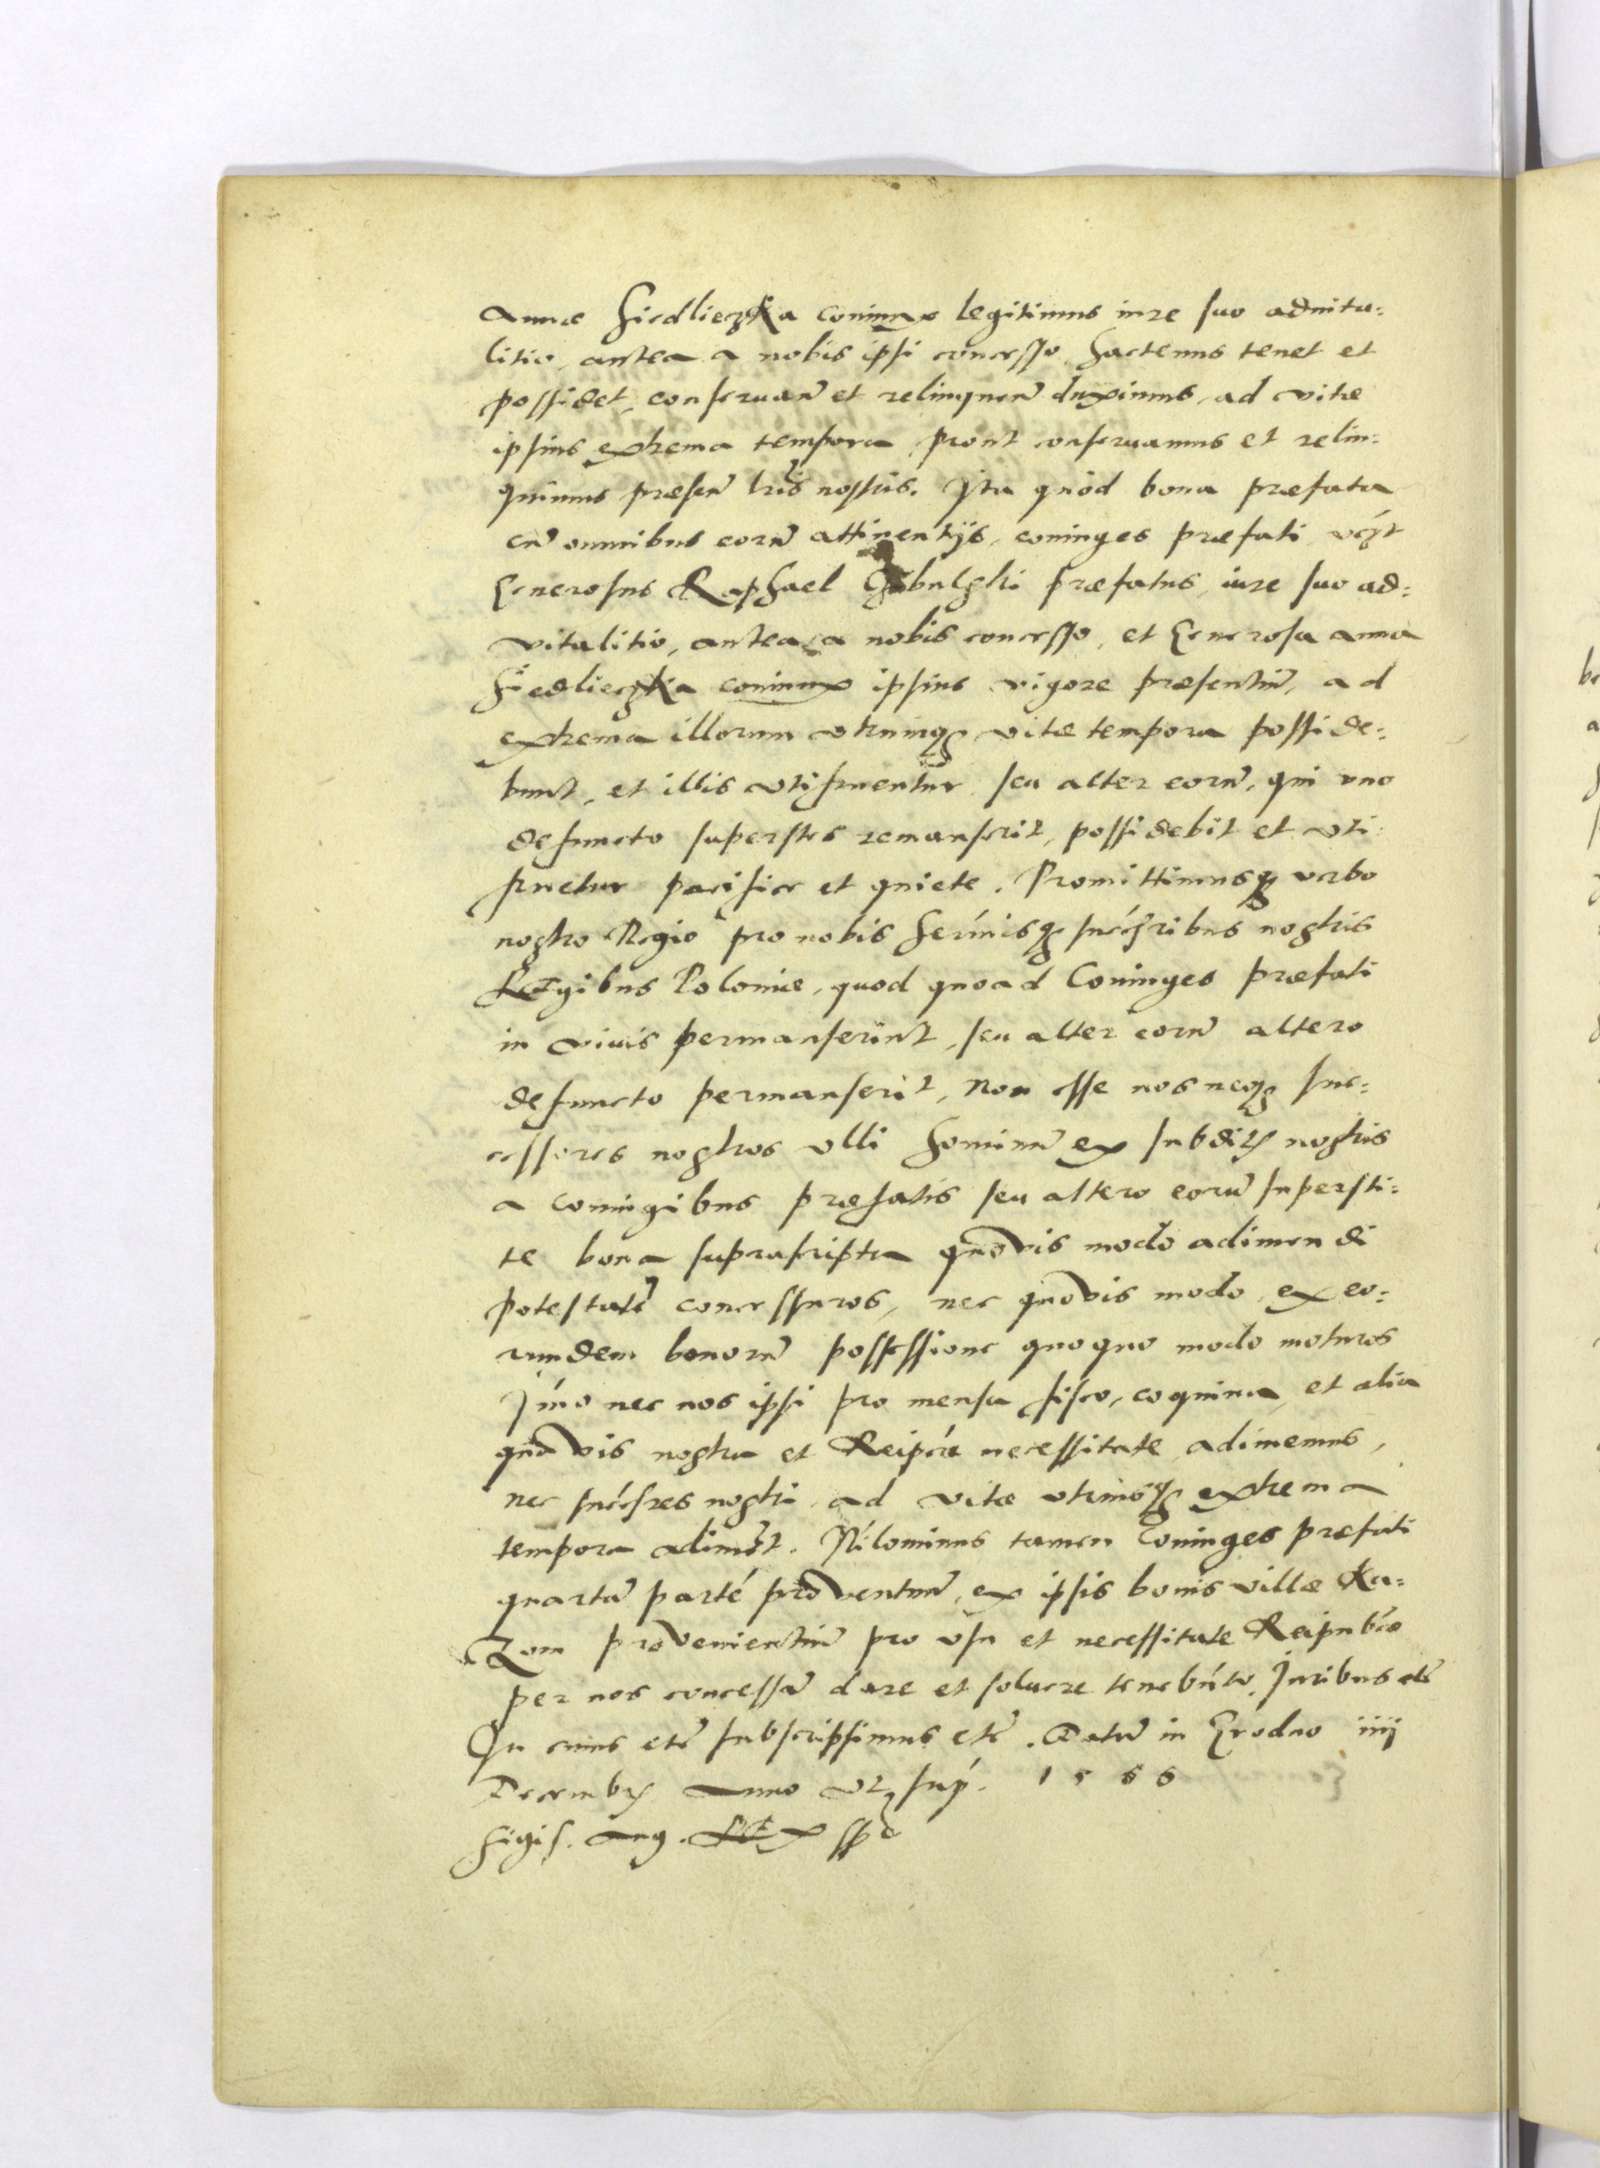 Annæ Siedlieczka coniunx legitimus iure suo aduita:
litio, antea a nobis ipsi concesso, hactenus tenet et
possidet, conseruan̄ et relinquen̄ duximus, ad vitæ
ipsius extrema tempora, prout conseruamus et relin:
quimus præsen̄ lrīs nostris. Ita quod bona præfata
cū omnibus eorū attinentijs, coniuges præfati vczt
Generosus Raphael præfatus, iure suo ad:
vitalitio, antea a nobis concesso, et Generosa anna
Siedlieczka coniunx ipsius vigore præsentiū, ad
extrema illorum vtriusq; vitæ tempora posside:
bunt, et illis vtifruentur, seu alter eorū, qui vno
defuncto superstes remanserit, possidebit et vti:
fruetur pacifice et quiete. Promittimusq; verbo
nostro Regio pro nobis Serm̄isq; succ̄ribus nostris
Regibus Poloniæ, quod quoad Coniuges præfati
in viuis permanserint, seu alter eorū altero
defuncto permanserit, Non esse nos neq; suc:
cessores nostros vlli hominū ex subditis nostris
a coniugibus præfatis seu altero eorū supersti:
te bona suprascripta quouis modo adimendi
potestatē concessuros, nec quouis modo, ex eo:
rundem bonorū possessione quoquo modo moturos
Im̄o nec nos ipsi pro mensa fisco, coquina, et alia
quauis nostra et Reipcæ necessitate adimemus,
nec succ̄res nostri ad vitæ vtriusq; extrema
tempora adimēt. Nilominus tamen Coniuges præfati
quartā partē prouentuū, ex ipsis bonis villæ Ka:
zom prouenientiū pro vsu et necessitate Reipubcæ
per nos concessā dare et soluere tenebūtr. Iuribus etc̄
In cuius etc̄ subscripsimus etc̄. Datū in Grodno iiij
Decembris Anno vt sup. 1566
Sigis. Aug. Rex sspt